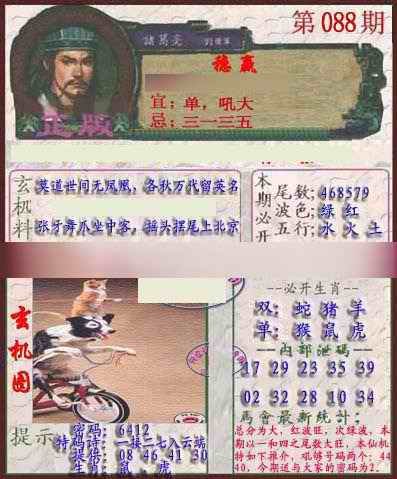 第088期
諸葛亮
劉伯溫
稳赢
宜：单，吼大
忌：三一三五
正版
玄机料
莫道世间无凤凰，各秋万代留英名
张牙舞爪坐中客，摇头摆尾上北京
本期必开
尾数：468579
波色：绿 红
五行：水 火 土
玄机图
--必开生肖--
双：蛇 猪 羊
单：猴 鼠 虎
--内部泄码--
17 29 23 35 39
02 32 28 10 34
馬會最新統计：
总分为大，红波旺，次绿波，本期以一和四之尾数大旺，本仙机特如下推介，吼够号码两个：4440，今期道与大家的密码为2．
提示
密码：6412
特码诗：一接二七入云端
提倍：08 46 41 30
生肖：鼠．虎